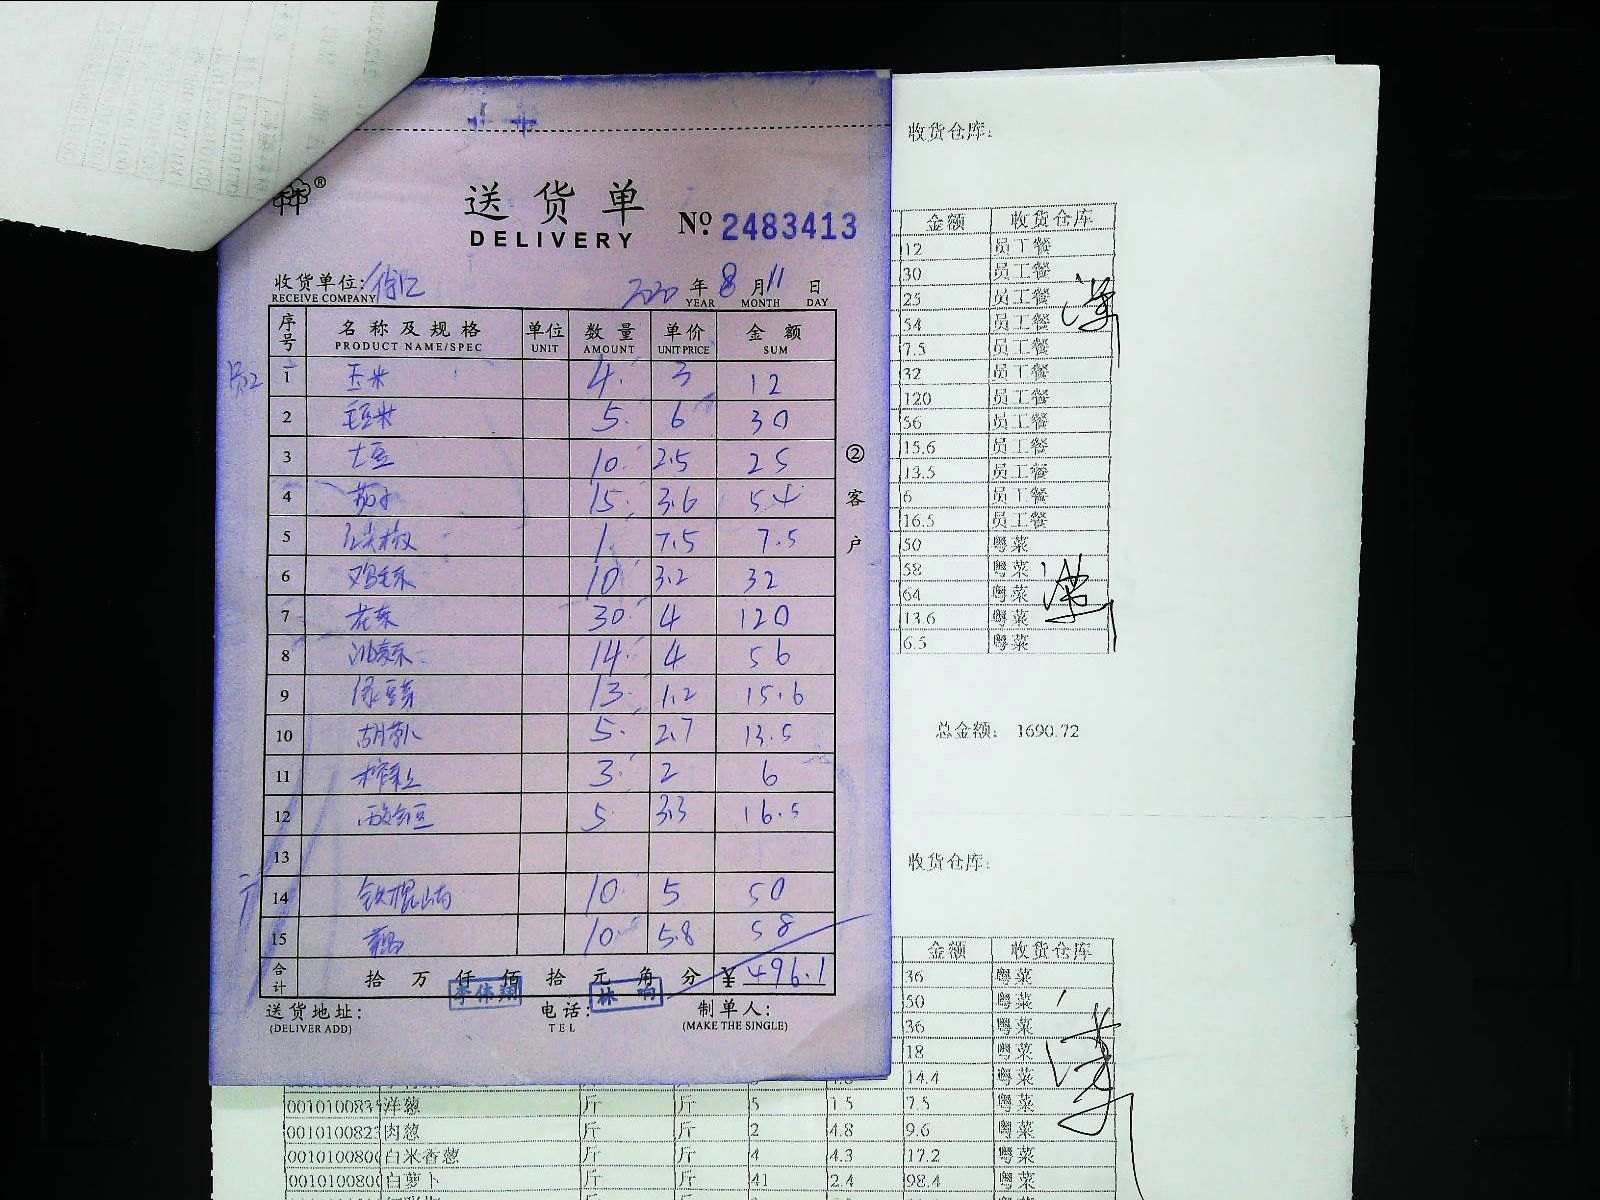 送货单
DELIVERY
№ 2483413
收货单位:
RECEIVE COMPANY
2020 年 8 月 11 日
YEAR MONTH DAY
序号 名称及规格 单位 数量 单价 金额
PRODUCT NAME/SPEC UNIT AMOUNT UNIT PRICE SUM
员工
1 玉米 4 3 12
2 毛豆米 5 6 30
3 土豆 10 2.5 25
4 茄子 15 3.6 54
5 1 7.5 7.5
6 鸡毛菜 10 3.2 32
7 花菜 30 4 120
8 油麦菜 14 4 56
9 绿豆芽 13 1.2 15.6
10 胡萝卜 5 2.7 13.5
11 3 2 6
12 酸豇豆 5 3.3 16.5
13
14 铁棍山药 10 5 50
15 藕 10 5.8 58
合计 拾 万 仟 佰 拾 元 角 分 ¥ 496.1
李伟翔
林
送货地址:
(DELIVER ADD)
电话:
TEL
制单人:
(MAKE THE SINGLE)
② 客户
收货仓库:
金额 收货仓库
12 员工餐
30 员工餐
25 员工餐
54 员工餐
7.5 员工餐
32 员工餐
120 员工餐
56 员工餐
15.6 员工餐
13.5 员工餐
6 员工餐
16.5 员工餐
50 粤菜
58 粤菜
64 粤菜
13.6 粤菜
6.5 粤菜
总金额: 1690.72
收货仓库:
金额 收货仓库
36 粤菜
50 粤菜
36 粤菜
18 粤菜
14.4 粤菜
洋葱 斤 斤 5 1.5 7.5 粤菜
0010100823 肉葱 斤 斤 2 4.8 9.6 粤菜
001010080 白米香葱 斤 斤 4 4.3 17.2 粤菜
001010080 白萝卜 斤 斤 41 2.4 98.4 粤菜